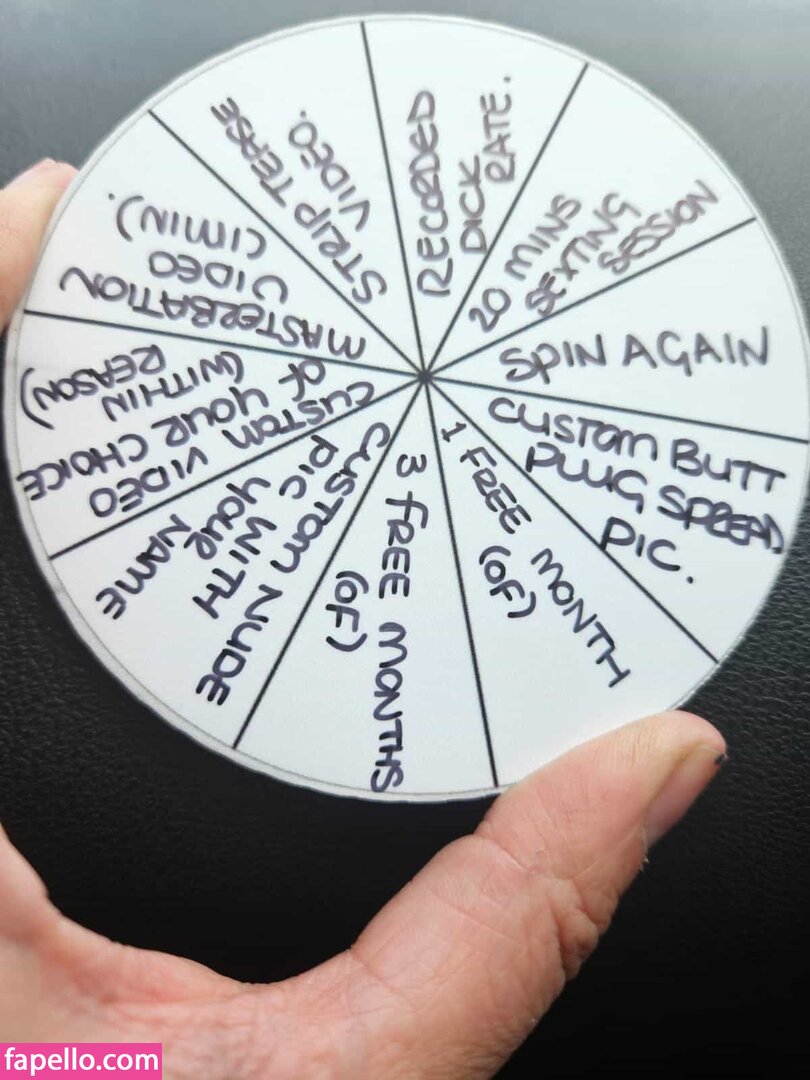 RECORDED
DICK
RATE.
20 MINS
SEXTING
SESSION
SPIN AGAIN
CUSTOM BUTT
PLUG SPREAD
PIC.
1 FREE MONTH
(OF)
3 FREE MONTHS
(OF)
CUSTOM NUDE
PIC WITH
YOUR
NAME
CUSTOM VIDEO
OF YOUR CHOICE
(WITHIN
REASON)
MASTERBATION
VIDEO
(1MIN).
STRIP TEASE
VIDEO.
fapello.com